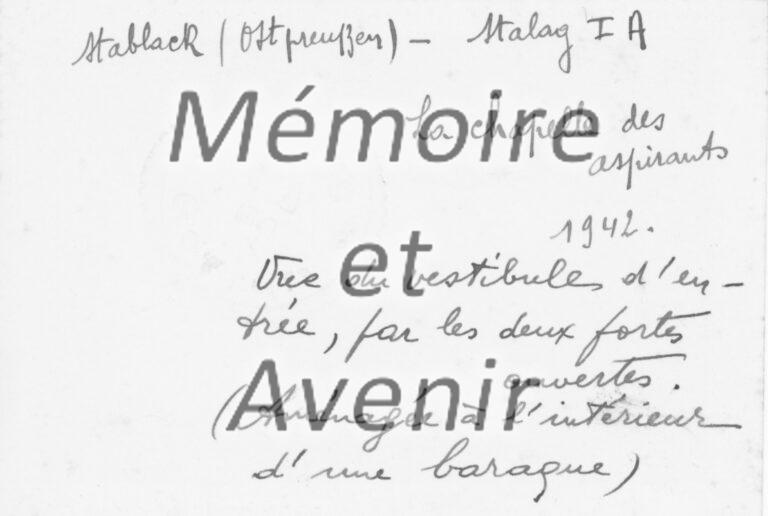 Stablack (Ostpreußen) – Stalag I A
La chapelle des
aspirants
1942.
Vue du vestibule d'en-
trée, par les deux portes
ouvertes.
(Aménagée à l'intérieur
d'une baraque)
Mémoire
et
Avenir